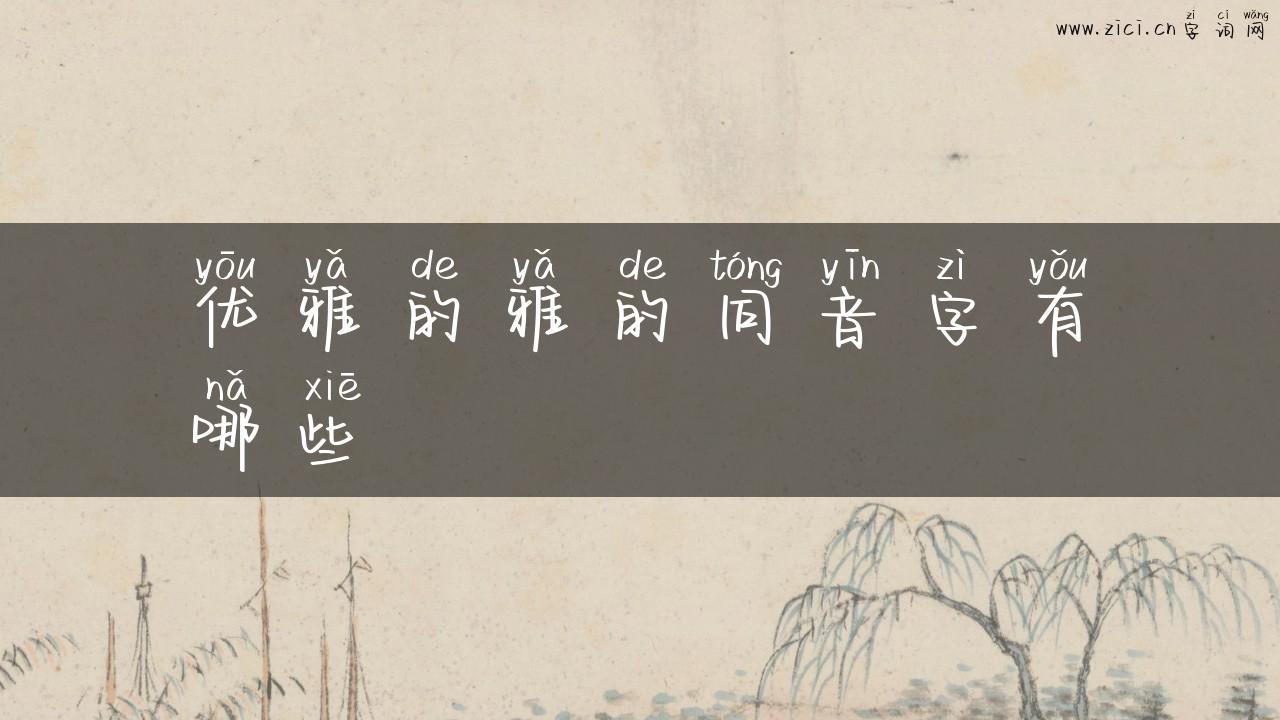 zì cí wǎng
www.zici.cn 字词网
yōu yǎ de yǎ de tóng yīn zì yǒu
优雅的雅的同音字有
nǎ xiē
哪些